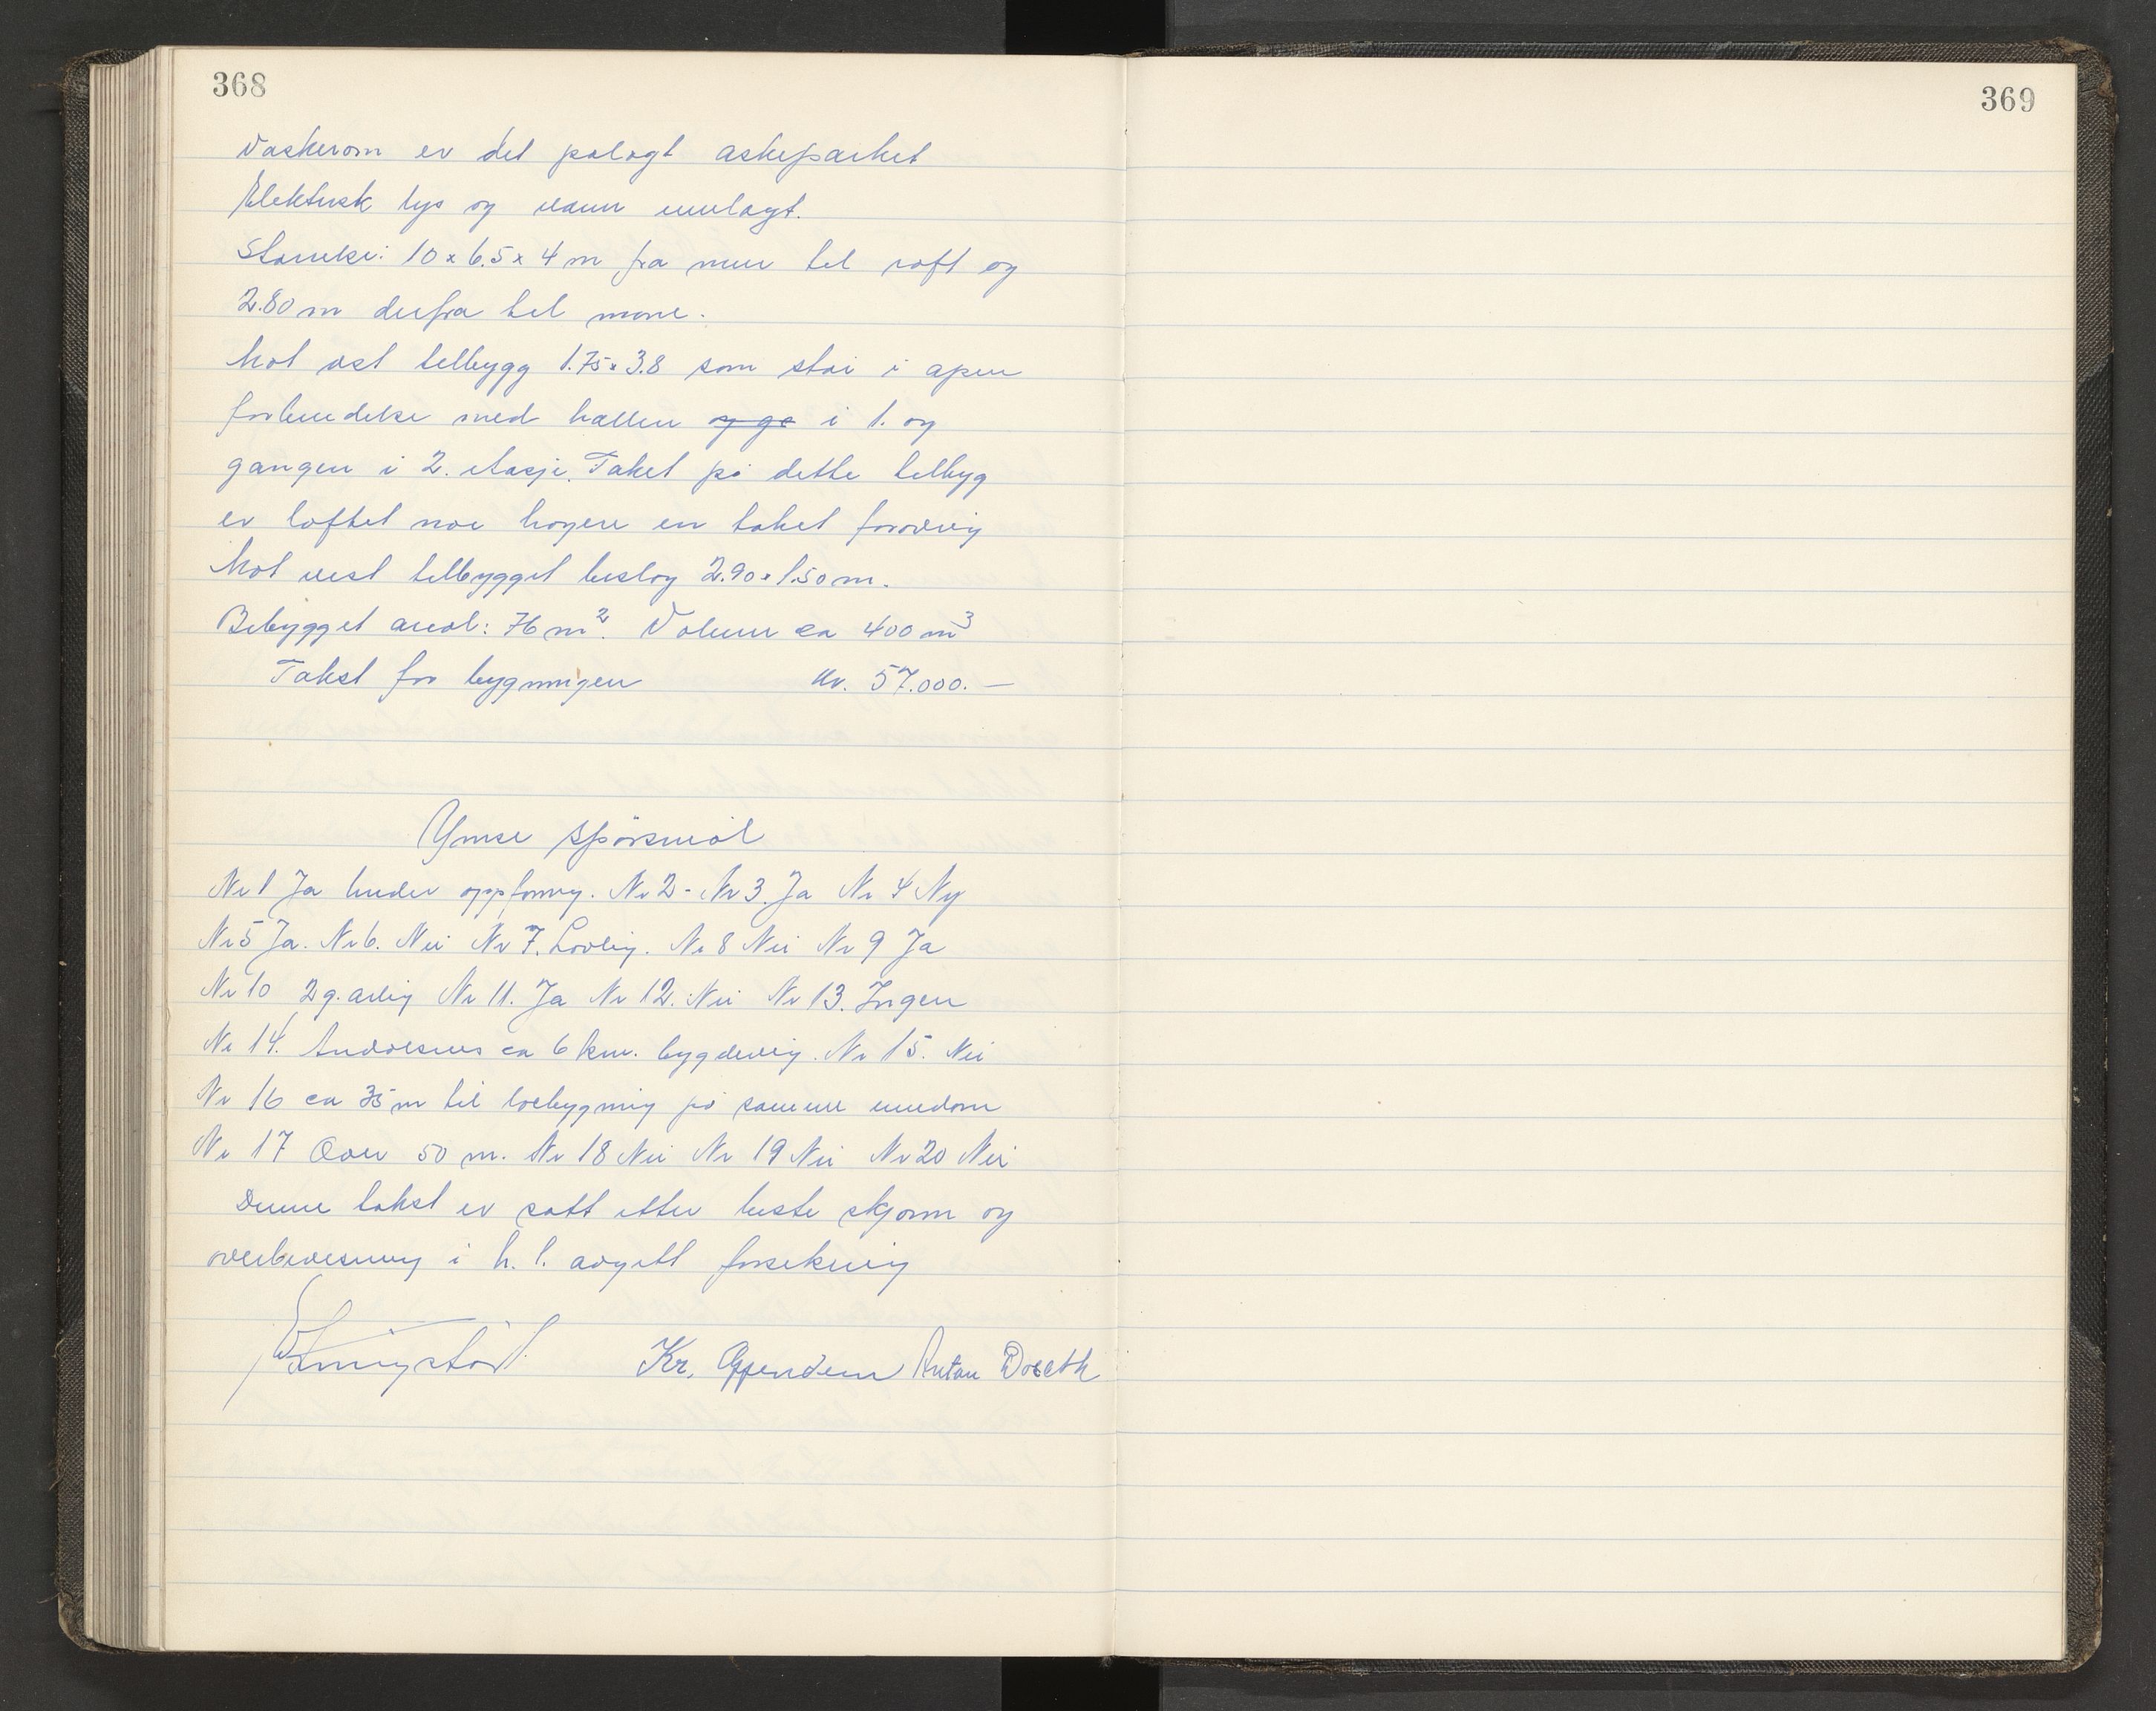 368
Vaskerom er det pålagt askeparket
Elektrisk lys og vann innlagt.
Størrelse: 10 x 6.5 x 4 m fra mur til roft og
2.80 m derfra til møne.
Mot øst tilbygg 1.75 x 3.8 som står i åpen
forbindelse med hallen og ga i 1. og
gangen i 2. etasje. Taket på dette tilbyg
er løftet noe høyere en taket forøvrig
Mot vest tilbygget bislag 2.90 x 1.50 m.
Bebygget areal: 76 m². Volum ca 400 m³
Takst for bygningen kr. 57.000.—
Ymse spörsmål
Nr 1 Ja under oppføring. Nr 2 - Nr 3. Ja Nr 4 Ny
Nr 5 Ja. Nr 6. Nei Nr 7. Lovlig. Nr 8 Nei Nr 9 Ja
Nr 10 2 g. årlig Nr 11. Ja Nr 12. Nei Nr 13. Ingen
Nr 14. Åndalsnes ca 6 km. bygdeveg. Nr 15. Nei
Nr 16 ca 35 m til løebygning på samme eiendom
Nr 17 Over 50 m. Nr 18 Nei Nr 19 Nei Nr 20 Nei
Denne takst er satt etter beste skjønn og
overbevisning i h. t. avgitt forsikring
Kr. Oppendem Anton Voseth
369